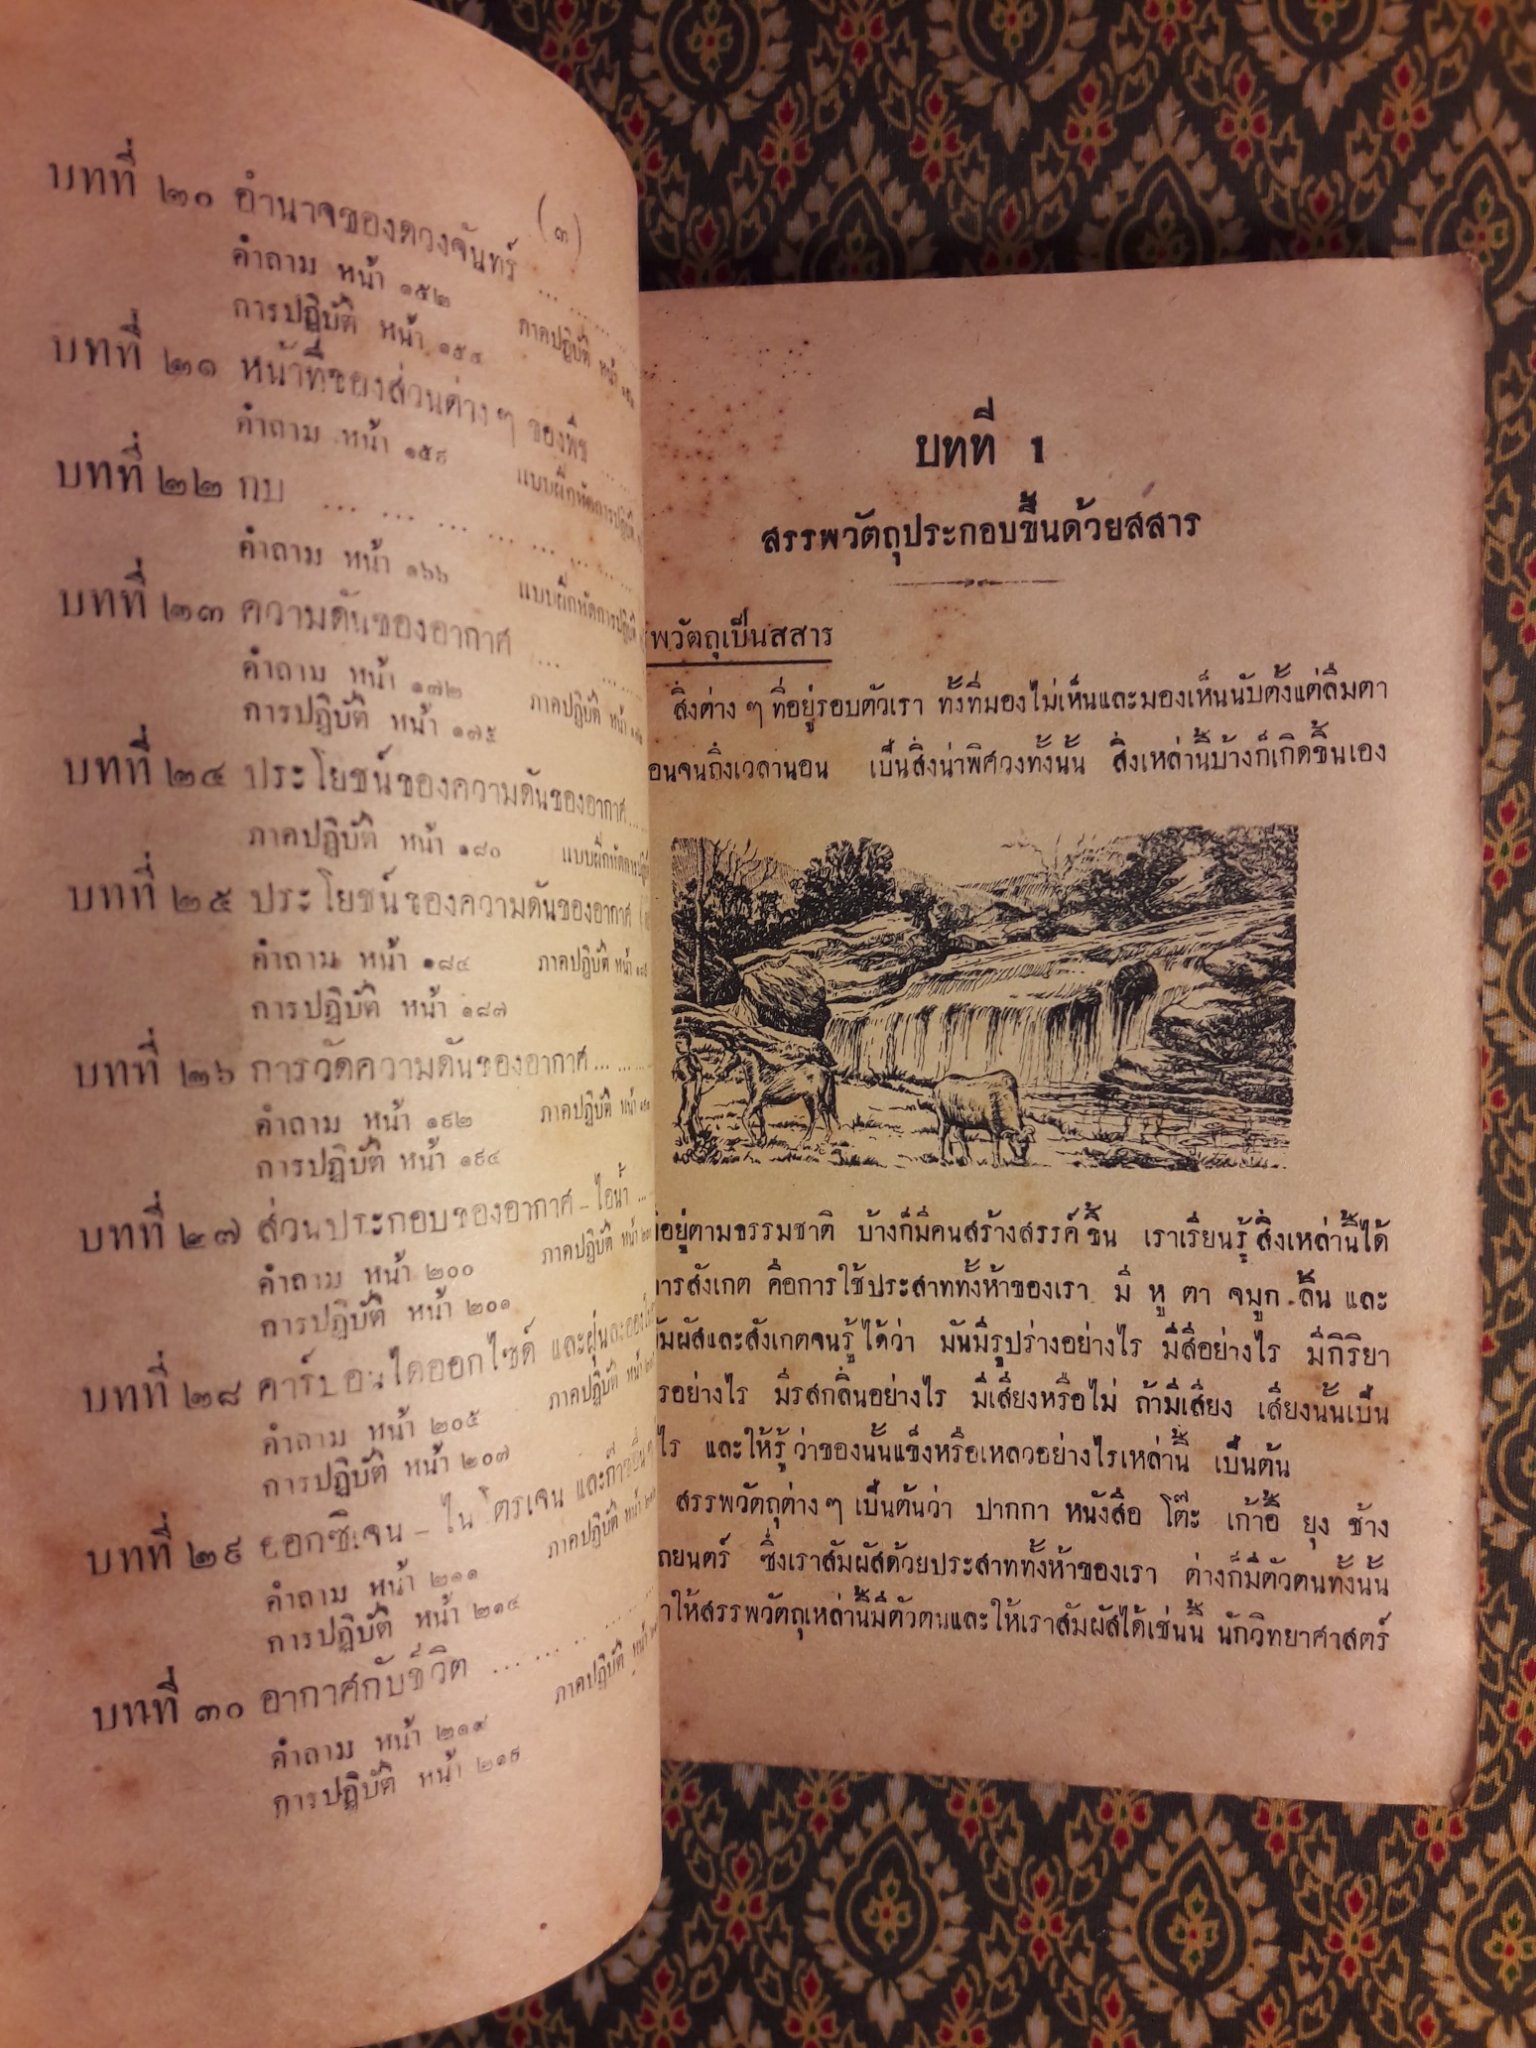 (๓)
บทที่ ๒๐ อำนาจของดวงจันทร์ ... ...
คำถาม หน้า ๑๕๒ ภาคปฏิบัติ หน้า
การปฏิบัติ หน้า ๑๕๔
บทที่ ๒๑ หน้าที่ของส่วนต่างๆ ของพืช ...
คำถาม หน้า ๑๕๙ แบบฝึกหัดการปฏิบัติ
บทที่ ๒๒ กบ ... ... ... ... ... ...
คำถาม หน้า ๑๖๖ แบบฝึกหัดการปฏิบัติ
บทที่ ๒๓ ความดันของอากาศ ... ...
คำถาม หน้า ๑๗๒ ภาคปฏิบัติ หน้า
การปฏิบัติ หน้า ๑๗๕
บทที่ ๒๔ ประโยชน์ของความดันของอากาศ ...
ภาคปฏิบัติ หน้า ๑๘๐ แบบฝึกหัดการปฏิบัติ
บทที่ ๒๕ ประโยชน์ของความดันของอากาศ
คำถาม หน้า ๑๘๔ ภาคปฏิบัติ หน้า
การปฏิบัติ หน้า ๑๘๗
บทที่ ๒๖ การวัดความดันของอากาศ ... ...
คำถาม หน้า ๑๙๒ ภาคปฏิบัติ หน้า
การปฏิบัติ หน้า ๑๙๔
บทที่ ๒๗ ส่วนประกอบของอากาศ - ไอน้ำ ...
คำถาม หน้า ๒๐๐ ภาคปฏิบัติ หน้า
การปฏิบัติ หน้า ๒๐๑
บทที่ ๒๘ คาร์บอนไดออกไซด์ และฝุ่นละออง
คำถาม หน้า ๒๐๕ ภาคปฏิบัติ หน้า
การปฏิบัติ หน้า ๒๐๗
บทที่ ๒๙ ออกซิเจน - ไนโตรเจน และก๊าซอื่น
คำถาม หน้า ๒๑๑ ภาคปฏิบัติ หน้า
การปฏิบัติ หน้า ๒๑๔
บทที่ ๓๐ อากาศกับชีวิต ... ... ...
คำถาม หน้า ๒๑๙ ภาคปฏิบัติ หน้า
การปฏิบัติ หน้า
บทที่ ๑
สรรพวัตถุประกอบขึ้นด้วยสสาร
พวัตถุเป็นสสาร
สิ่งต่าง ๆ ที่อยู่รอบตัวเรา ทั้งที่มองไม่เห็นและมองเห็นนับตั้งแต่ลืมตา
อนจนถึงเวลานอน เป็นสิ่งน่าพิศวงทั้งนั้น สิ่งเหล่านี้บ้างก็เกิดขึ้นเอง
อยู่ตามธรรมชาติ บ้างก็มีคนสร้างสรรค์ขึ้น เราเรียนรู้สิ่งเหล่านี้ได้
ารสังเกต คือการใช้ประสาททั้งห้าของเรา มี หู ตา จมูก ลิ้น และ
ัมผัสและสังเกตจนรู้ได้ว่า มันมีรูปร่างอย่างไร มีสีอย่างไร มีกิริยา
รอย่างไร มีรสกลิ่นอย่างไร มีเสียงหรือไม่ ถ้ามีเสียง เสียงนั้นเป็น
ไร และให้รู้ว่าของนั้นแข็งหรือเหลวอย่างไรเหล่านี้ เป็นต้น
สรรพวัตถุต่างๆ เป็นต้นว่า ปากกา หนังสือ โต๊ะ เก้าอี้ ยุง ช้าง
ถยนตร์ ซึ่งเราสัมผัสด้วยประสาททั้งห้าของเรา ต่างก็มีตัวตนทั้งนั้น
าให้สรรพวัตถุเหล่านี้มีตัวตนและให้เราสัมผัสได้เช่นนี้ นักวิทยาศาสตร์